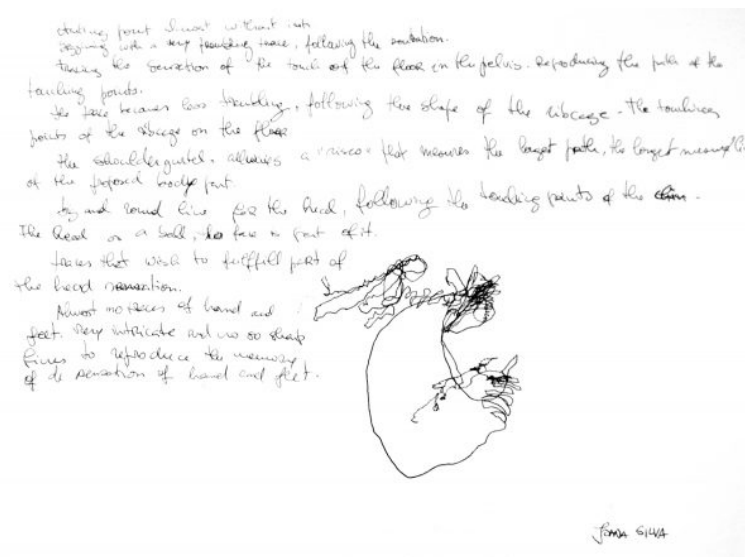 starting point almost without
with a very trembling trace, following the
tracing the sensation of the touch of the floor on the pelvis. Reproducing the path of the
touching points.
the trace becomes less trembling, following the shape of the ribcage. The touching
points of the ribcage on the floor
the shoulder girdle. a "risco" that measures the longest path, the longest
of the proposed body part.
big and round line for the head, following the touching points of the
The head as a ball, the face is part of it.
traces that wish to fullfill part of
the head sensation.
Almost no traces of hand and
feet. Very intricate and no so sharp
lines to reproduce the memory
of de sensation of hand and feet.
JOANA SILVA